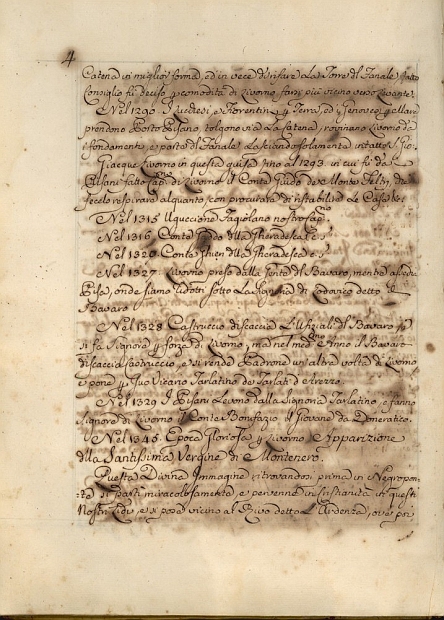 4
Catena in miglior forma, ed in vece di rifare La Torre del Fanale, fatto
Consiglio fù deciso p comodità di Livorno farsi più vicino verso Levante.
Nel 1290 I Lucchesi, e Fiorentini p Terra, ed i Genovesi p Mare
prendono Porto Pisano, tolgono via La Catena, rovinano Livorno da
i fondamenti, e parte del Fanale Lasciando solamente intatto S. Gio:
Giacque Livorno in questa guisa sino al 1293 in cui fù da i
Pisani fatto Cap.no di Livorno il Conte Guido da Monte Feltro, che
fecelo respirare alquanto, con procurare di ristabilire Le Case
Nel 1315 Uguccione Fagiolano nostro Cap.no
Nel 1316 Conte della Gheradesca
Nel 1320 Conte della Gheradesca
Nel 1327 Livorno preso dalla Gente del Bavaro, mentre assedia
Pisa, onde siamo ridotti sotto La Signoria di Lodovico detto il
Bavaro
Nel 1328 Castruccio discaccia L'Ufiziali del Bavaro
si fà Signore p forza di Livorno, ma nel med.mo Anno il Bavaro
discaccia Castruccio, e si rende Padrone un'altra volta di Livorno
e pone p suo Vicario Tarlatino de Tarlati d'Arezzo.
Nel 1329 I Pisani Levono dalla Signoria Tarlatino, e fanno
Signore di Livorno il Conte Bonifazio il Giovane da Doneratico.
Nel 1345 Epoca Gloriosa p Livorno Apparizione
della Santissima Vergine di Montenero.
Questa Divina Immagine ritrovandosi prima in Negropon-
te si partì miracolosamente, e pervenne in Cristianità in questi
nostri Lidi, e si pose vicino al Rivo detto L'Ardenza, ove poi